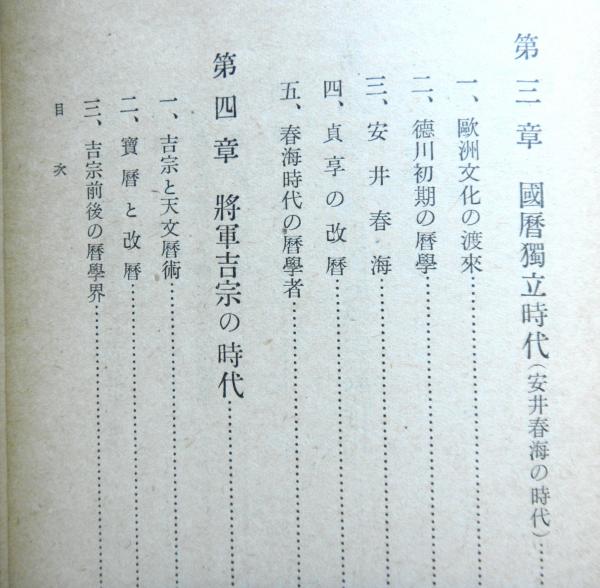 第三章 國曆獨立時代(安井春海の時代)
一、歐洲文化の渡來
二、德川初期の曆學
三、安井春海
四、貞享の改曆
五、春海時代の曆學者
第四章 將軍吉宗の時代
一、吉宗と天文曆術
二、寶曆と改曆
三、吉宗前後の曆學界
目次